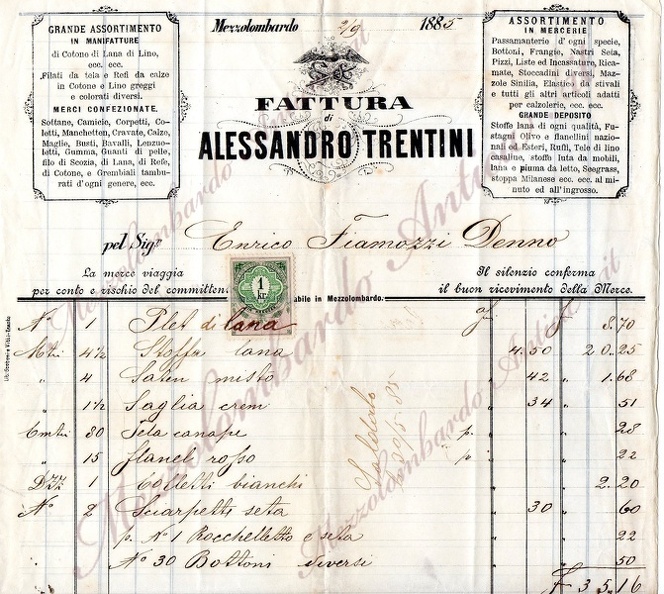 GRANDE ASSORTIMENTO
IN MANIFATTURE
di Cotone di Lana di Lino,
ecc. ecc.
Filati da tela e Refi da calze
in Cotone e Lino greggi
e colorati diversi.
MERCI CONFEZIONATE.
Sottane, Camicie, Corpetti, Co-
letti, Manchetten, Cravate, Calze,
Maglie, Busti, Bavalli, Lenzuo-
letti, Gumma, Guanti di pelle,
filo di Scozia, di Lana, di Refe,
di Cotone, e Grembiali tambu-
rati d'ogni genere, ecc.
Mezzolombardo 2/9 1885
FATTURA
di
ALESSANDRO TRENTINI
ASSORTIMENTO
IN MERCERIE
Passamanterie d'ogni specie,
Bottoni, Frangie, Nastri Seta,
Pizzi, Liste ed Incassature, Rica-
mate, Stoccadini diversi, Maz-
zole Sinilia, Elastico da stivali
e tutti gli altri articoli adatti
per calzolerie, ecc. ecc.
GRANDE DEPOSITO
Stoffe lana di ogni qualità, Fu-
stagni Olivo e flanellini nazio-
nali ed Esteri, Rufli, Tele di lino
casaline, stoffo Iuta da mobili,
lana e piuma da letto, Seegrass,
stoppa Milanese ecc. ecc. al mi-
nuto ed all'ingrosso.
pel Sigr Enrico Fiamozzi Denno
La merce viaggia
per conto e rischio del committen
1
kr
abile in Mezzolombardo.
Il silenzio conferma
il buon ricevimento della Merce.
No 1 Plet di lana f 8.70
Mtri 4½ Stoffa lana 4.50 " 20.25
" 4 Saten misto " 42 " 1.68
" 1½ Saglia crem " 34 " 51
Cmtri 80 Tela canape p. " 28
" 15 flanel rosso p " 22
Dzz 1 Colletti bianchi " 2.20
No 2 Sciarpetti seta " 30 " 60
p. No 1 Rocchelletto e seta " 22
No 30 Bottoni diversi " 50
F 35.16
Saldato
20/5 85
Mezzolombardo Antica
Mezzolombardo Antica.it